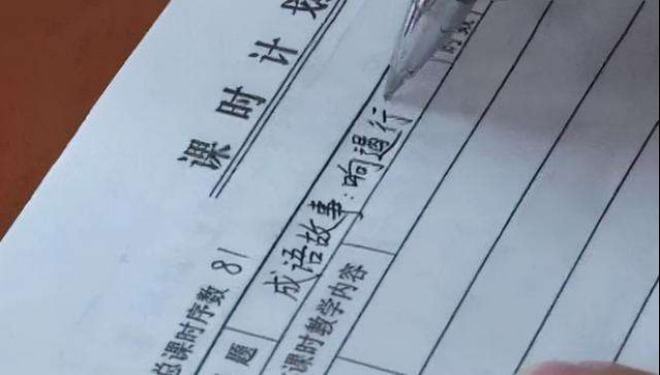 课时计划
总课时序数 81
题 成语故事:响遏行
课时教学内容